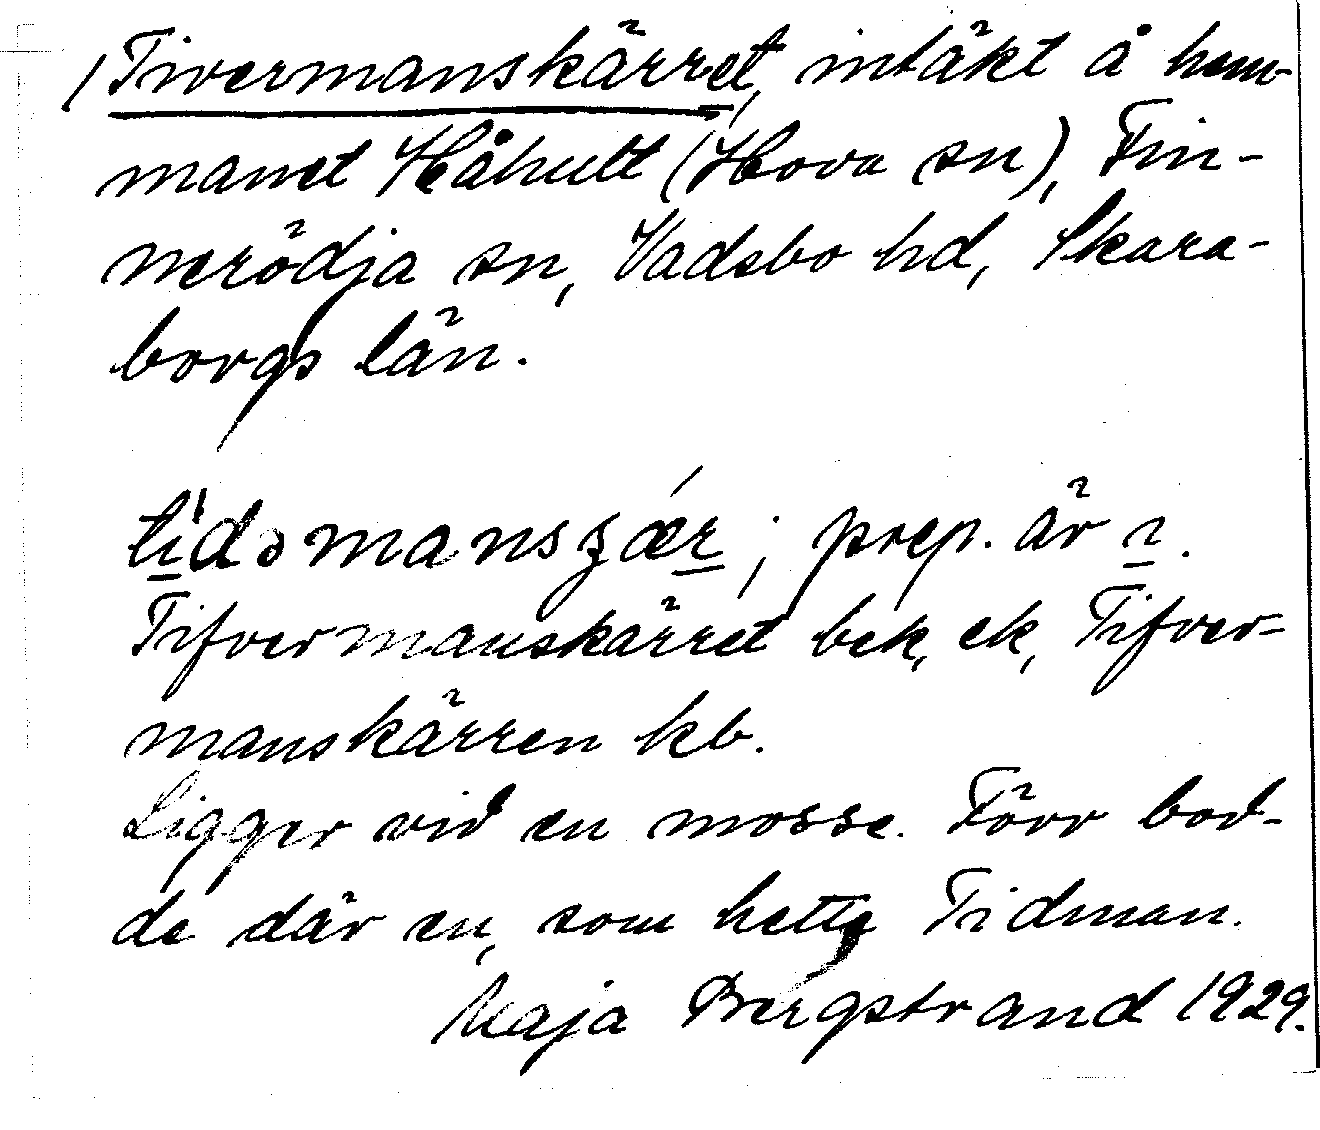 /Tivermanskärret, intäkt å hem-
manet Håhult (Hova sn), Fin-
nerödja sn, Vadsbo hd, Skara-
borgs län.
prep. är ɿ.
Tifvermanskärret bek, ek, Tifver-
manskärren kb.
Ligger vid en mosse. Förr bod-
de där en, som hette Tidman.
Maja Bergstrand 1929.